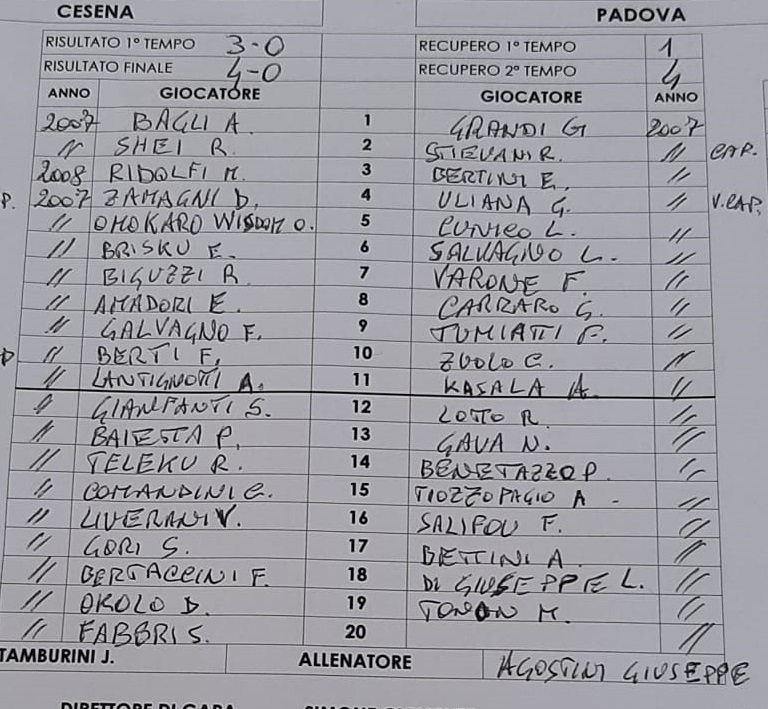 CESENA PADOVA
RISULTATO 1° TEMPO 3-0 RECUPERO 1° TEMPO 1
RISULTATO FINALE 4-0 RECUPERO 2° TEMPO 4
ANNO GIOCATORE GIOCATORE ANNO
2007 BAGLI A. 1 GRANDI G 2007
// SHEI R. 2 STIEVANI R. // CAP.
2008 RIDOLFI M. 3 BERTINI E. //
P. 2007 ZAMAGNI D. 4 ULIANA G. // V.CAP.
// OMOKARO WISDOM O. 5 CUNICO L. //
// BRISKU E. 6 SALVAGNO L. //
// BIGUZZI R. 7 VARONE F. //
// AMADORI E. 8 CARRARO G. //
// GALVAGNO F. 9 TUMIATTI F. //
// BERTI F. 10 ZUOLO C. //
// LANTIGNOTTI A. 11 KASALA A. //
// GIANFANTI S. 12 LOTTO R. //
// BAIESTA P. 13 GAVA N. //
// TELEKU R. 14 BENETAZZO P. //
// COMANDINI C. 15 TIOZZO PAGIO A - //
// LIVERANI V. 16 SALIFOU F. //
// GORI S. 17 BETTINI A. //
// BERTACCINI F. 18 DI GIUSEPPE L. //
// OKOLO D. 19 TONON M. //
// FABBRI S. 20 //
TAMBURINI J. ALLENATORE AGOSTINI GIUSEPPE
DIRETTORE DI GARA